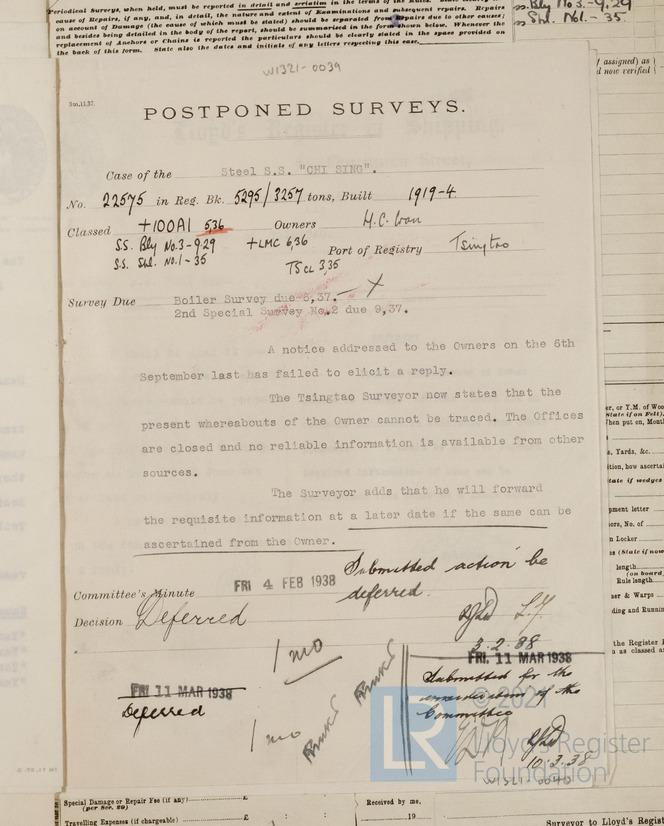 Periodical Surveys, when held, must be reported in detail and seriatim in the terms of the Rules.
cause of Repairs, if any, and, in detail, the nature and extent of Examinations and subsequent repairs. Repairs
on account of Damage (the cause of which must be stated) should be separated from Repairs due to other causes;
and besides being detailed in the body of the report, should be summarised in the form shown below. Whenever the
replacement of Anchors or Chains is reported the particulars should be clearly stated in the space provided on
the back of this form. State also the dates and initials of any letters respecting this case.
ss. Bly No 3-9.29
S.S. Shl. No1.-35
W1321-0039
POSTPONED SURVEYS.
Case of the Steel S.S. "CHI SING".
No. 22575 in Reg. Bk. 5295/3257 tons, Built 1919-4
Classed +100A1 5,36 Owners H.C. Wan
S.S. Bly No.3-9.29 +LMC 6,36 Port of Registry Tsingtao
S.S. Shl. No.1-35 TS CL 3,35
Survey Due Boiler Survey due 6,37. X
2nd Special Survey No.2 due 9,37.
A notice addressed to the Owners on the 6th
September last has failed to elicit a reply.
The Tsingtao Surveyor now states that the
present whereabouts of the Owner cannot be traced. The Offices
are closed and no reliable information is available from other
sources.
The Surveyor adds that he will forward
the requisite information at a later date if the same can be
ascertained from the Owner.
Submitted action be
deferred.
Committee's Minute FRI 4 FEB 1938
Decision Deferred
3.2.38
1 mo
FRI. 11 MAR 1938
Submitted for the
consideration of the
Committee
10.3.38
FRI 11 MAR 1938
Deferred
1 mo
© 2021
LR
Lloyd's Register
Foundation
W1321-0040
Special Damage or Repair Fee (if any) £
(per Sec. 29)
Travelling Expenses (if chargeable) £
Received by me,
19
Surveyor to Lloyd's Regist